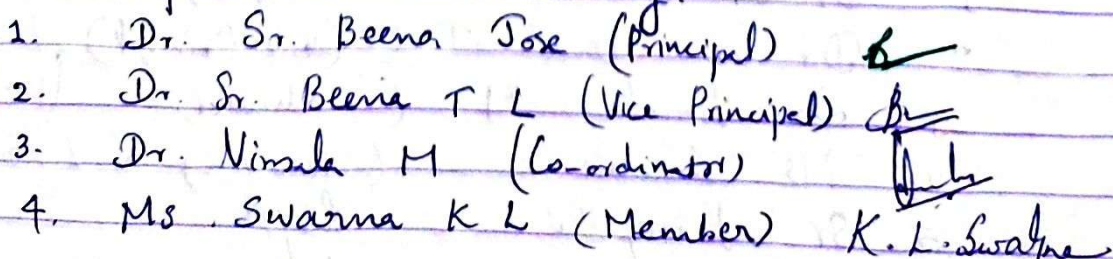 1. Dr. Sr. Beena Jose (Principal)
2. Dr. Sr. Beena T L (Vice Principal)
3. Dr. Nirmala M (Co-ordinator)
4. Ms. Swarna K L (Member) K. L. Swarna